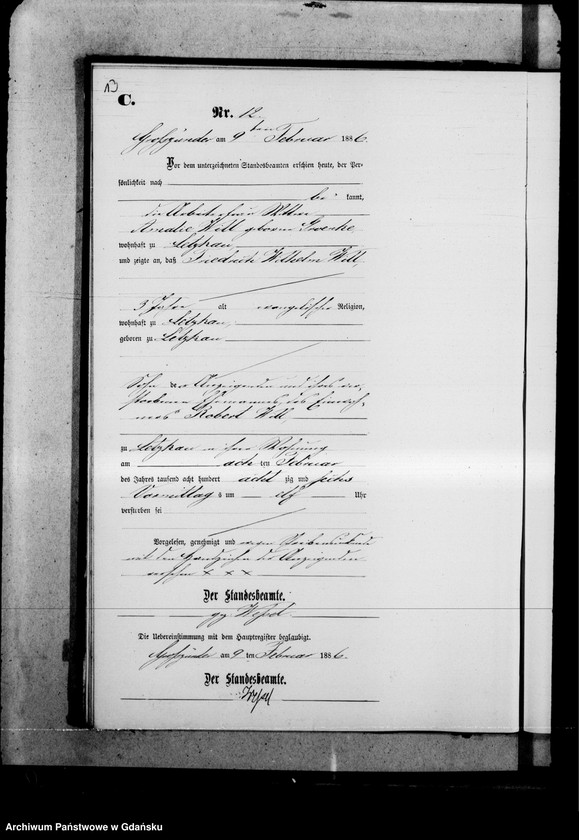 13
C.
Nr. 12.
am 9ten Februar 1886.
Vor dem unterzeichneten Standesbeamten erschien heute, der Per-
sönlichkeit nach
be kannt,
die Wittwe
Amalie Will geborne
wohnhaft zu Letzkau
und zeigte an, daß Friedrich Wilhelm Will,
3 Jahre alt evangelischer Religion,
wohnhaft zu Letzkau,
geboren zu Letzkau
Sohn der Anzeigenden und ihres ver-
storbenen Ehemannes, des Einwoh-
ners Robert Will,
zu Letzkau in ihrer Wohnung
am acht ten Februar
des Jahres tausend acht hundert acht zig und sechs
Vormittags um elf Uhr
verstorben sei
Vorgelesen, genehmigt und
mit den Handzeichen der Anzeigenden
versehen × × ×
Der Standesbeamte.
gez Wessel
Die Uebereinstimmung mit dem Hauptregister beglaubigt.
am 9 ten Februar 1886.
Der Standesbeamte.
Wessel
Archiwum Państwowe w Gdańsku